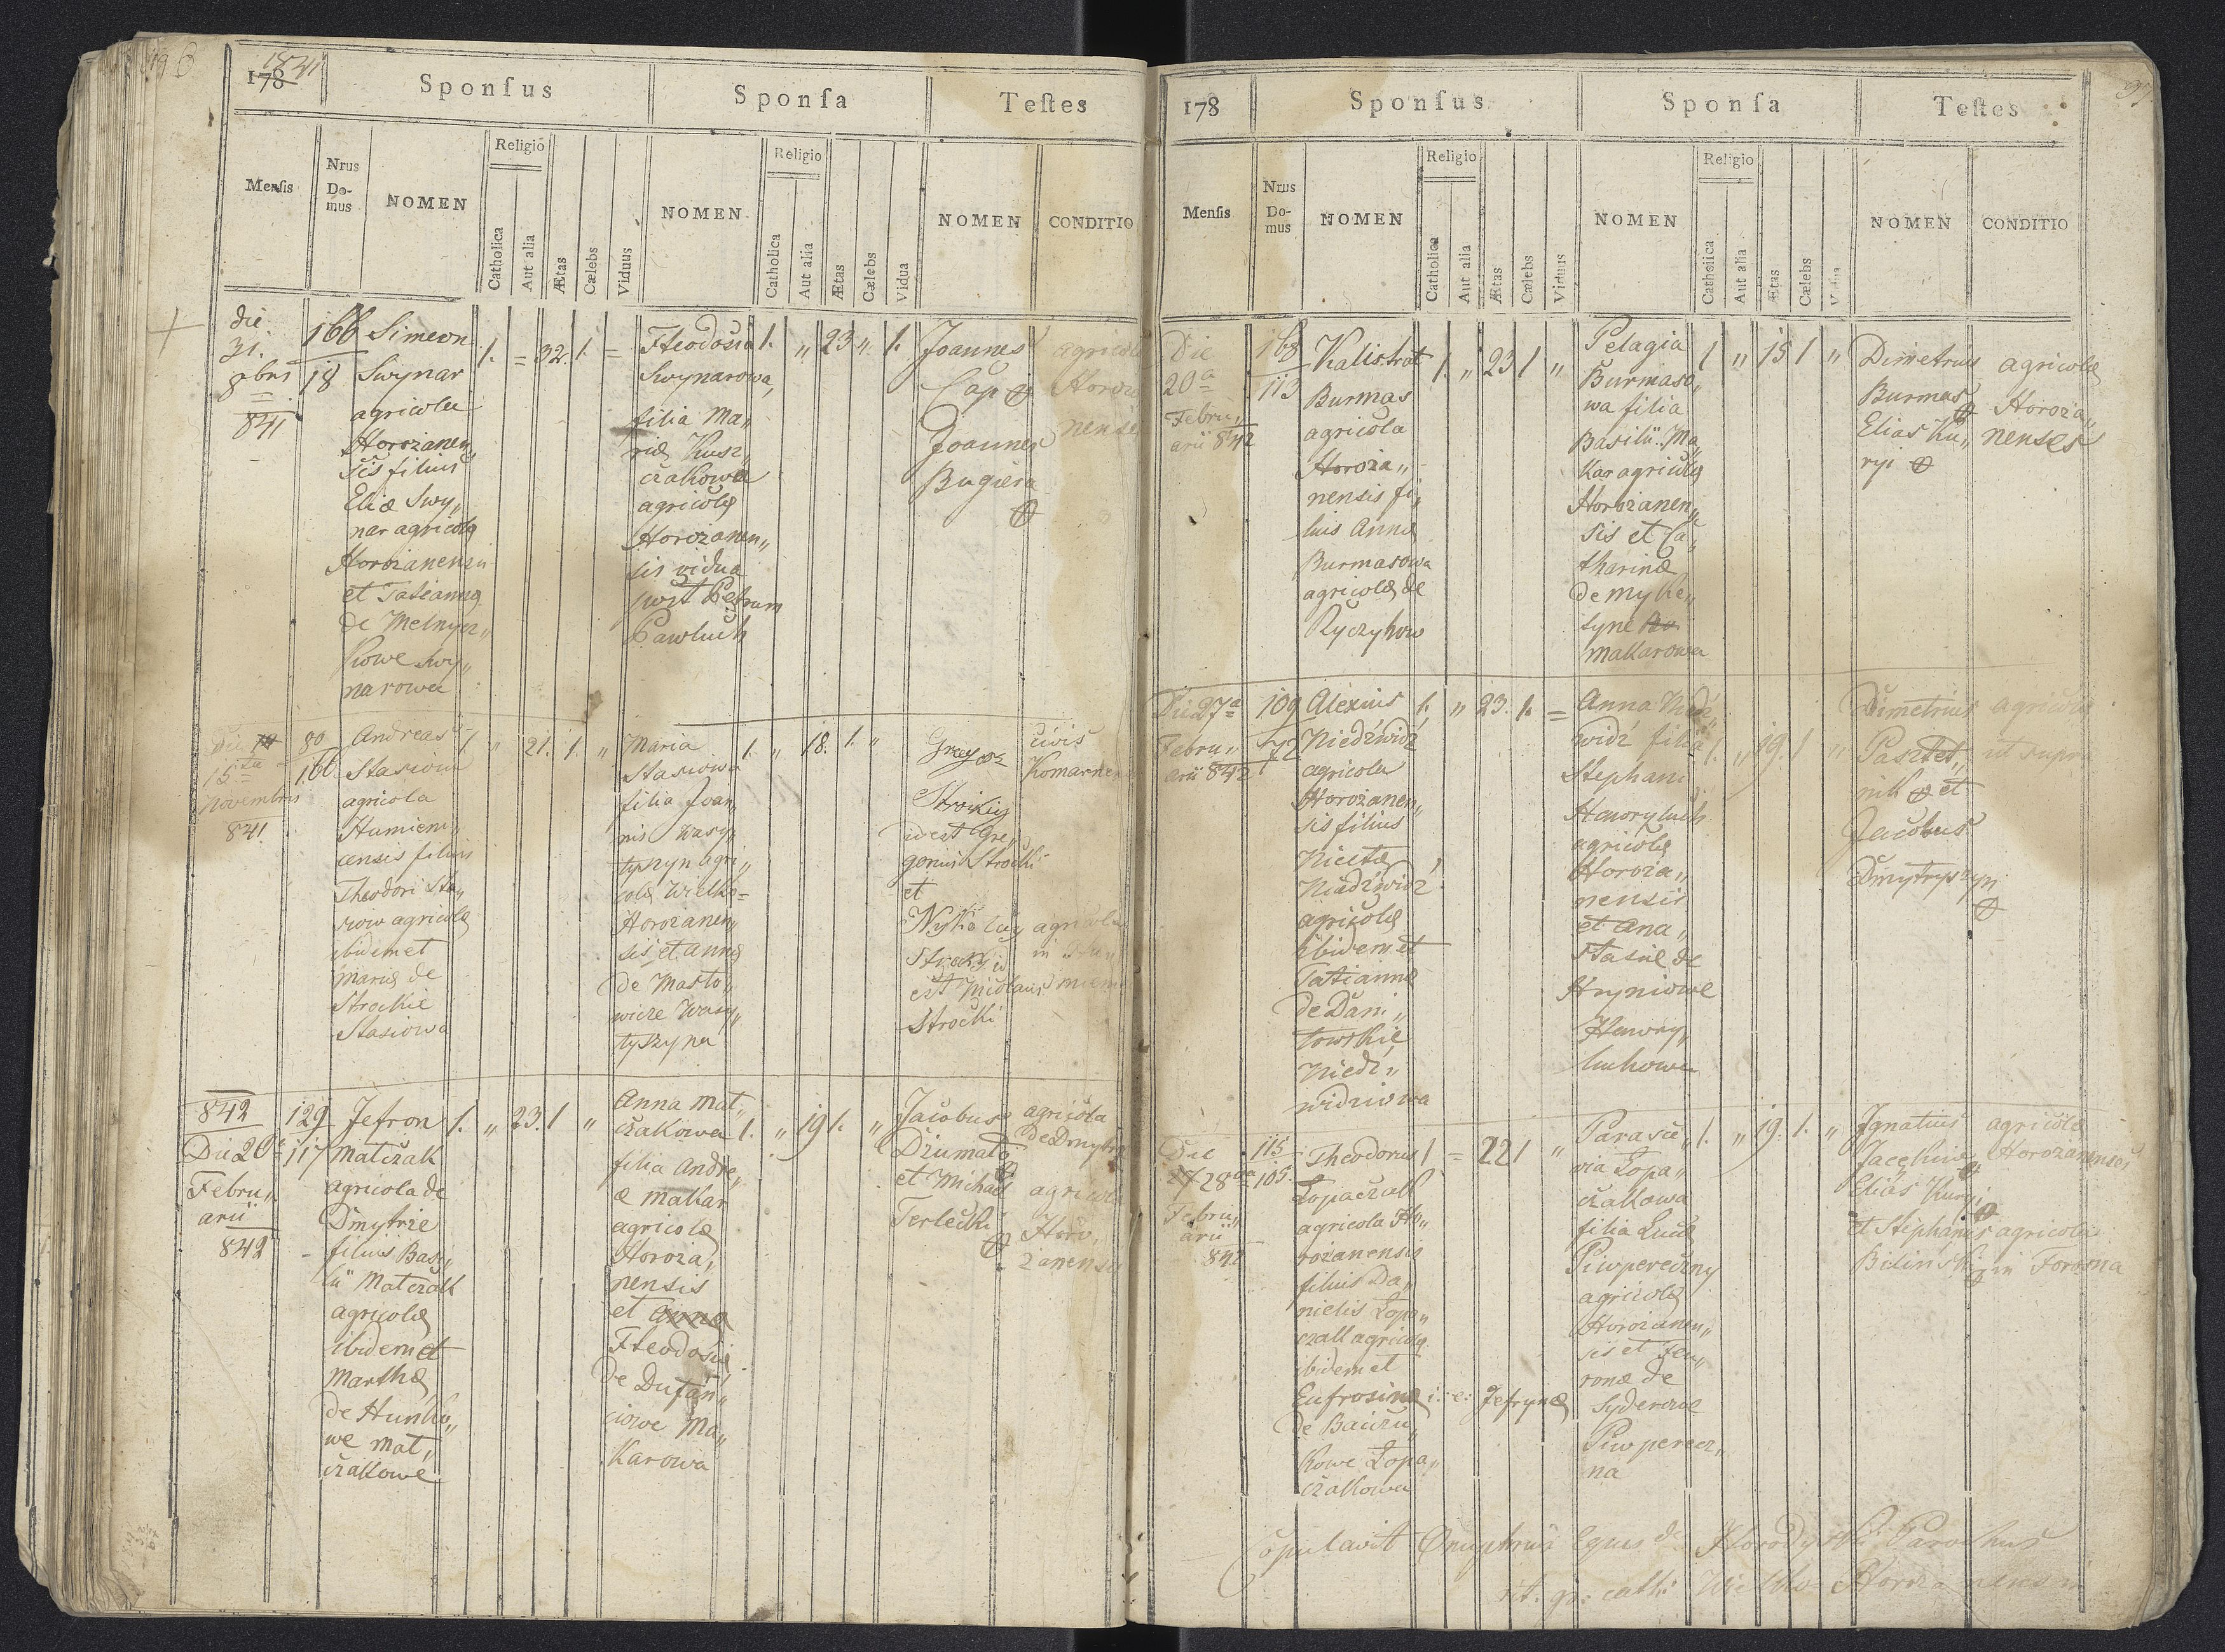 196
1841
178
Sponſus
Sponſa
Teſtes
Menſis
Nrus Domus
NOMEN
Religio
Catholica
Aut alia
Ætas
Cælebs
Viduus
NOMEN
Religio
Catholica
Aut alia
Ætas
Cælebs
Vidua
NOMEN
CONDITIO
die
31.
8bris
841
166
18
Simeon
Swynar
agricola
Horożanen„
sis filius
Eliæ Swy„
nar agricolæ
Horożanensis
et Tatiannæ
de Melnycz„
kowe Swy„
narowa
1. = 32. 1. =
Fteodosia
Swynarowa,
filia Ma„
riæ Kusz„
czakowa
agricolæ
Horożanen„
sis vidua
post Petrum
Pawluch
1. „ 23 „ 1.
Joannes
Cap
Joannes
Bugiera
agricolæ
Horoża
nenses
Die
15ta
Novembris
841.
80
166
Andreas
Stasiow
agricola
Humieni„
censis filius
Theodori Sta„
siow agricolæ
ibidem et
Mariæ de
Strockie
Stasiowa
1. „ 21. 1. „
Maria
Stasiowa
filia Joan„
nis Wasy„
tyszyn agri„
colæ Wielko=
Horożanen„
sis et Annæ
de Masto„
wicze Wasy„
tyszyna
1. „ 18. 1. „
Gregor
Strockij
id est Gre„
gorius Strocki
et
Nykołay
Strockij id
est Nicolaus
Strocki
civis
Komarnen
agricola
in Hu
mieni
842
Die 20a
Febru„
arii
842
129
117
Jefron
Matczak
agricola de
Dmytrze
filius Basy„
lii Matczak
agricolæ
ibidem et
Marthæ
de Hunko„
we Mat„
czakowe
1. „ 23. 1 „
Anna Mat„
czakowa
filia Andre„
æ Makar
agricolæ
Horoża„
nensis
et Annæ
Fteodosie
de Dufan„
ciowe Ma„
karowa
1. „ 19 1. „
Jacobus
Dziumala
et Michael
Terlecki
agricola
de Dmytrze
agricola
Horo„
żanensis
97
178
Sponſus
Sponſa
Teſtes
Menſis
Nrus Domus
NOMEN
Religio
Catholica
Aut alia
Ætas
Cælebs
Viduus
NOMEN
Religio
Catholica
Aut alia
Ætas
Cælebs
Vidua
NOMEN
CONDITIO
Die
20a
Febru„
arii 842
168
113
Kalistrat
Burmas
agricola
Horoża„
nensis fi„
lius Annæ
Burmasowa
agricolæ de
Ryczyhow
1. „ 23 1 „
Pelagia
Burmaso„
wa filia
Basilii Ma„
kar agricolæ
Horożanen„
sis et Ca„
tharinæ
de Myke„
tyne
Makarowa
1 „ 15 1 „
Dimetrius
Burmas
Elias Ku„
ryj
agricolæ
Horoża„
nenses
Die 27a
Febru„
arii 842
109
72
Alexius
Niedźwidź
agricola
Horożanen„
sis filius
Nicetæ
Niedźwidź
agricolæ
ibidem et
Tatiannæ
de Dani„
lowskie
Niedź„
widziowa
1. „ 23. 1. =
Anna Niedź„
widź filia
Stephani
Hawryluch
agricolæ
Horoża„
nensis
et Ana„
stasie de
Hryniowe
Hawry„
luchowa
1. „ 19. 1 „
Dimetrius
Pasztet„
nik et
Jacobus
Dmytryszyn
agricolæ
ut supra
Die
28va
Febru„
arii
842
115
105.
Theodorus
Łopaczak
agricola Ho„
rożanensis
filius Da„
nielis Łopa„
czak agricolæ
ibidem et
Eufrosinæ i: e: Jefrynæ
de Baiczu„
kowe Łopa„
czakowa
1 = 22 1 „
Parasce„
wia Łopa„
czakowa
filia Lucæ
Piwpereczny
agricolæ
Horożanen„
sis et Few„
ronæ de
Syderowe
Piwperecz„
na
1. „ 19. 1. „
Ignatius
Jacekiw
Elias Kuryj
et Stephanus
Bilinski
agricolæ
Horożanenses
agricola
in Forosna
Copulavit Onuphrius Eques de Horodyski Parochus
rit. gr: cath: Wielko-Horożanensis